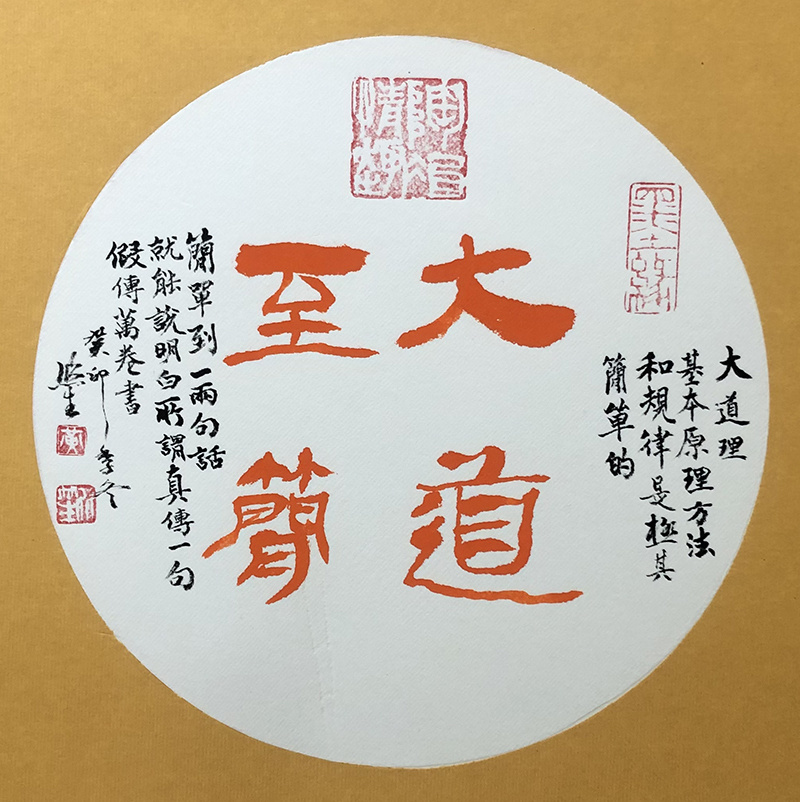 大道
至簡
大道理
基本原理方法
和規律是極其
簡單的
簡單到一兩句話
就能說明白所謂真傳一句
假傳萬卷書
癸卯季冬
黃